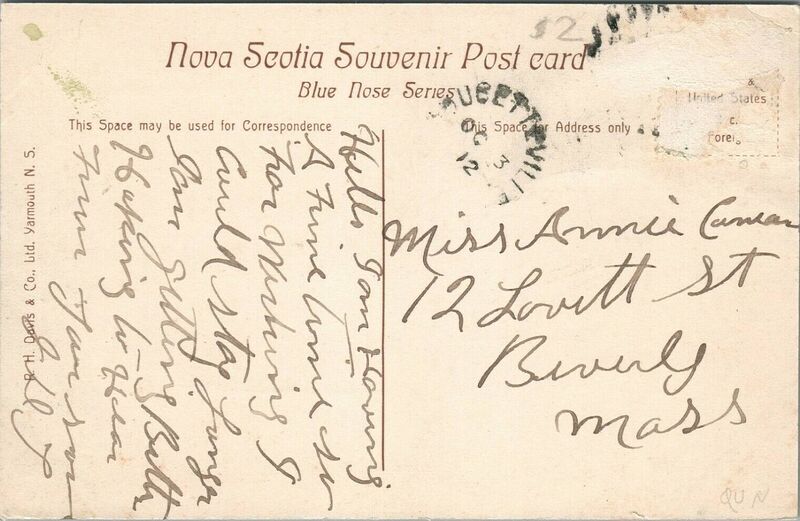 $2
Nova Scotia Souvenir Post card
Blue Nose Series
This Space may be used for Correspondence
This Space for Address only
United States
&
c.
Forei
OUCETTEVILLE
OC 3
12
R. H. Davis & Co., Ltd. Yarmouth N. S.
Hello I am Having
A Fine time so
Far Wishing I
Could stay Longer
I am getting Better
Hoping to Hear
From
Miss Annie
12 Lovett St
Beverly
Mass
QU N